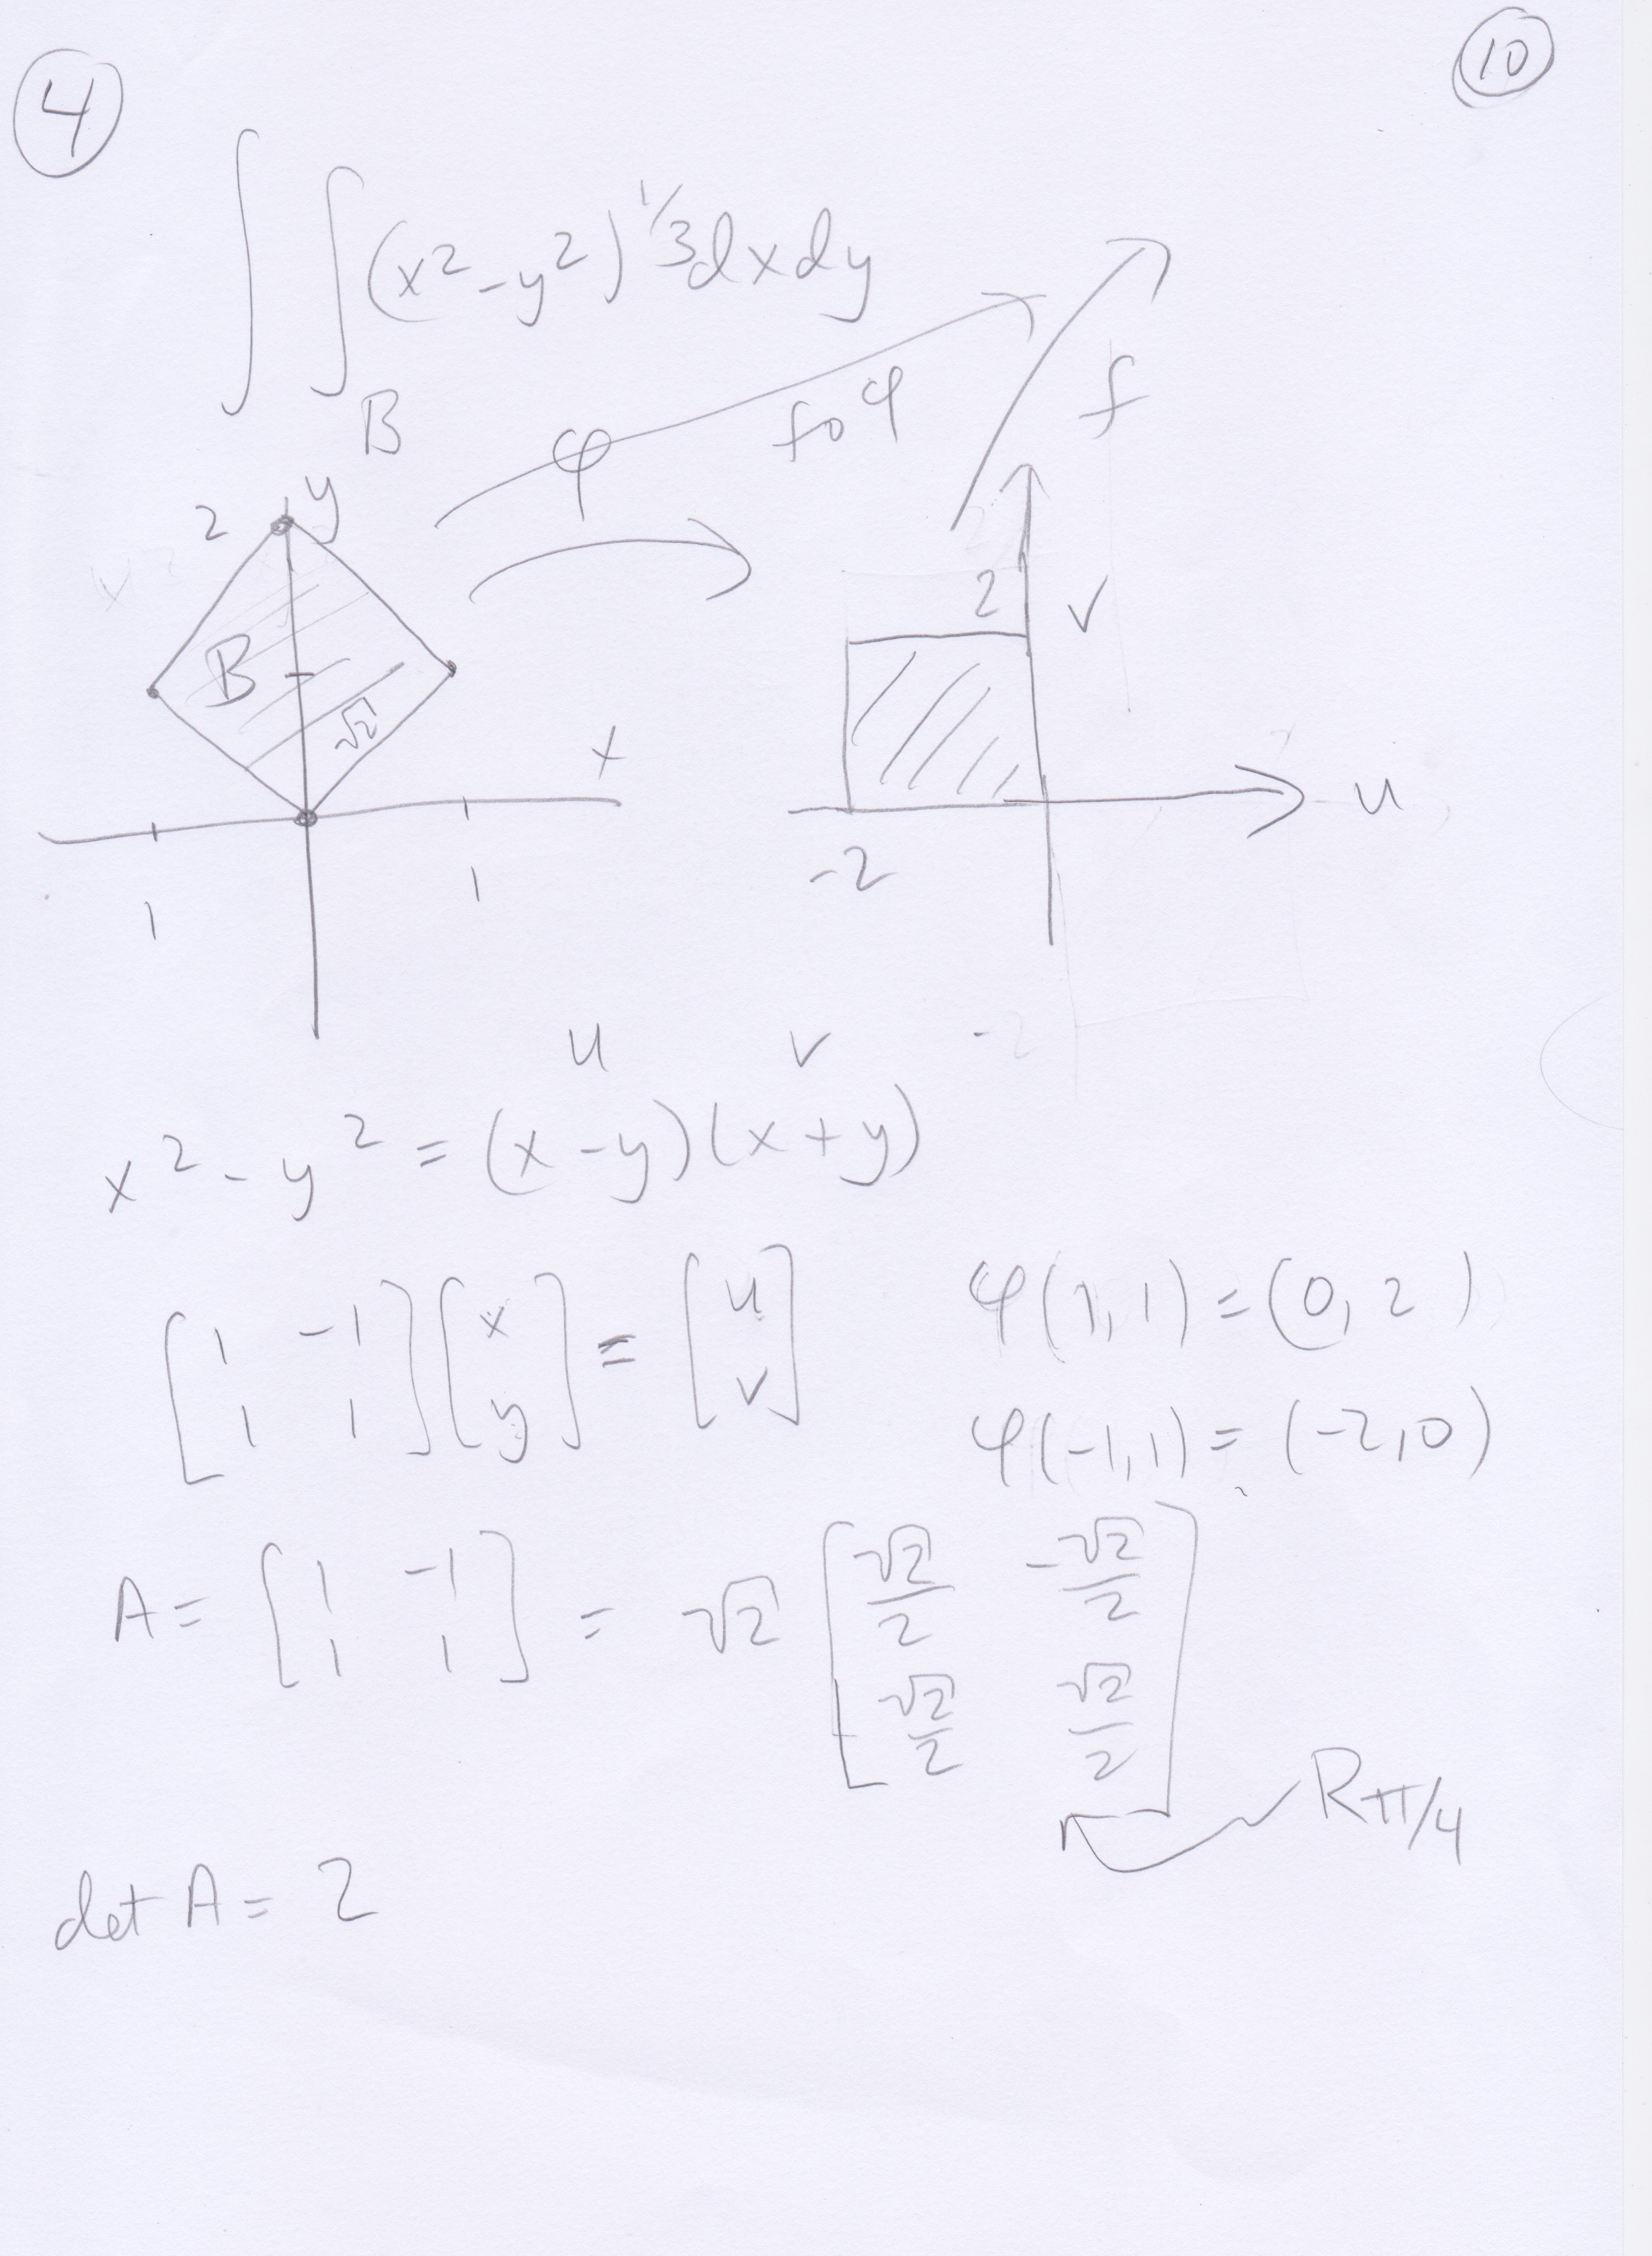 4
10
∫∫_B (x² - y²)^1/3 dx dy
φ
f∘φ
f
2
y
B
√2
x
1
1
2
v
u
-2
u v
x² - y² = (x - y)(x + y)
[1 -1; 1 1] [x; y] = [u; v]
φ(1, 1) = (0, 2)
φ(-1, 1) = (-2, 0)
A = [1 -1; 1 1] = √2 [√2/2 -√2/2; √2/2 √2/2]
Rπ/4
det A = 2